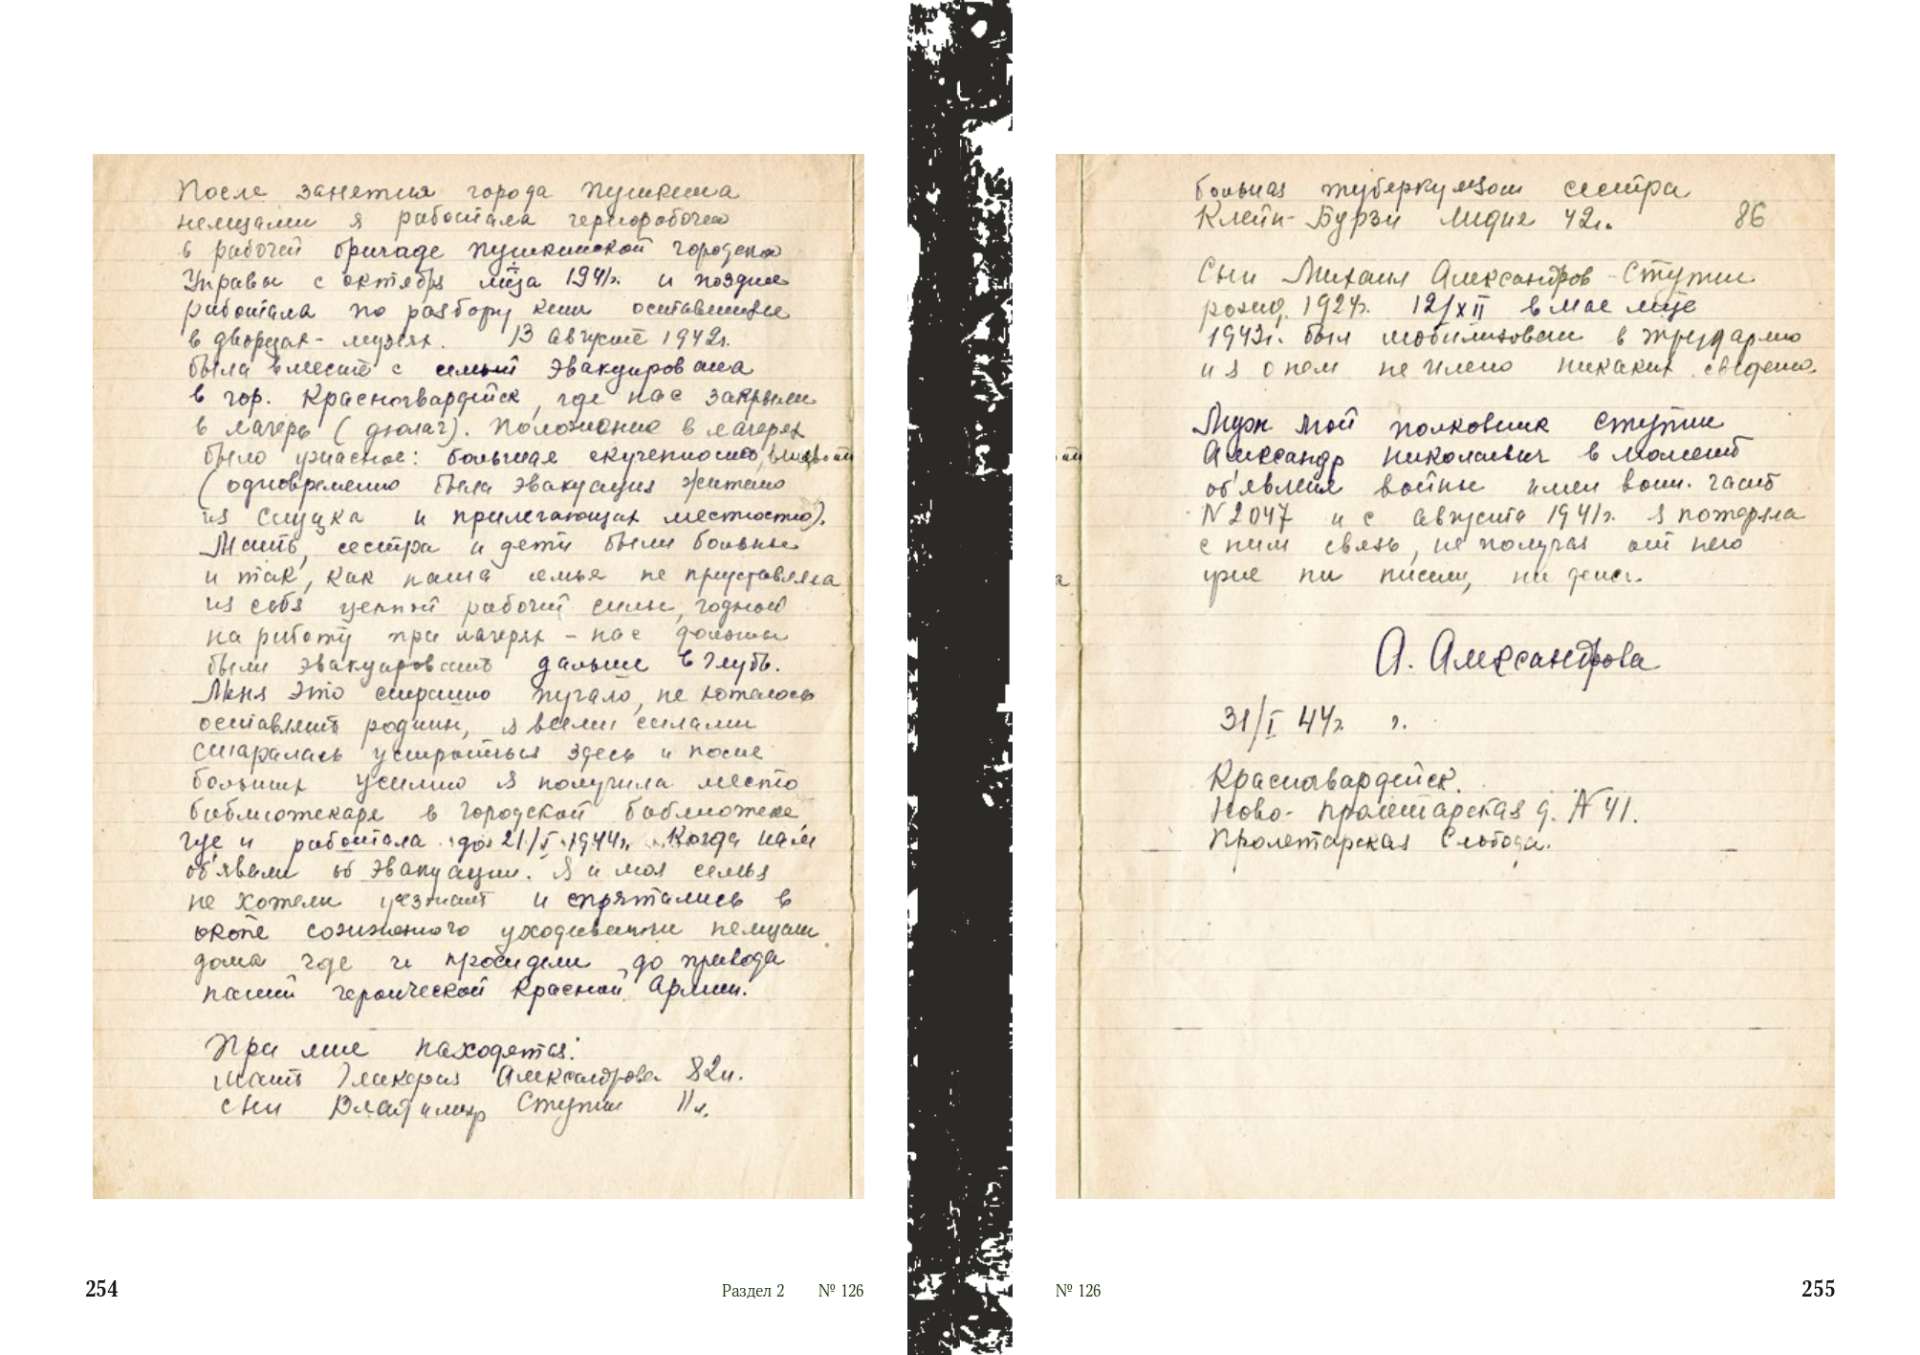 После занетия города Пушкина
немцами я работала чернорабочей
в рабочей бригаде Пушкинской городской
Управы с октября м-ца 1941г. и позднее
работала по разбору книг оставшихся
в дворцах-музеях. 13 августа 1942г.
была вместе с семьей эвакуирована
в гор. Красногвардейск, где нас закрыли
в лагерь (дюлаг). Положение в лагерях
было ужасное: большая скученность,
(одновременно была эвакуация жителей
из Слуцка и прилегающих местностей).
Мать, сестра и дети были больны
и так, как наша семья не представляла
из себя ценной рабочей силы, годной
на работу при лагерях – нас должны
были эвакуировать дальше в глубь.
Меня это страшно пугало, не хотелось
оставлять родину, я всеми силами
старалась устроиться здесь и после
больших усилий я получила место
библиотекаря в городской библиотеке,
где и работала до 21/I 1944г. Когда нам
об'явили об эвакуации. Я и моя семья
не хотели уезжать и спрятались в
окопе сожженного уходившими немцами
дома где и просидели до прихода
нашей героической Красной Армии.
При мне находятся:
мать Гликерия Александрова 82л.
сын Владимир Ступин 11л.
254
Раздел 2 № 126
больная туберкулезом сестра
Клейн-Бурзи Лидия 42г.
86
Сын Михаил Александров-Ступин
рожд. 1924г. 12/XII в мае м-це
1943г. был мобилизован в трудармию
и я о нем не имею никаких сведений.
Муж мой полковник Ступин
Александр Николаевич в момент
об'явления войны имел воин. часть
N 2047 и с августа 1941г. я потеряла
с ним связь, не получая от него
уже ни писем, ни денег.
А. Александрова
31/I 44г. г.
Красногвардейск.
Ново-Пролетарская д. N 41.
Пролетарская Слобода.
№ 126
255